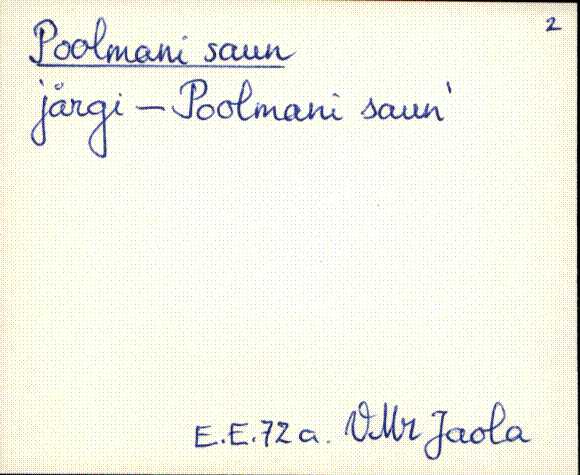 2
Poolmani saun
järgi – Poolmani saun'
E.E.72a. VMr Jaola